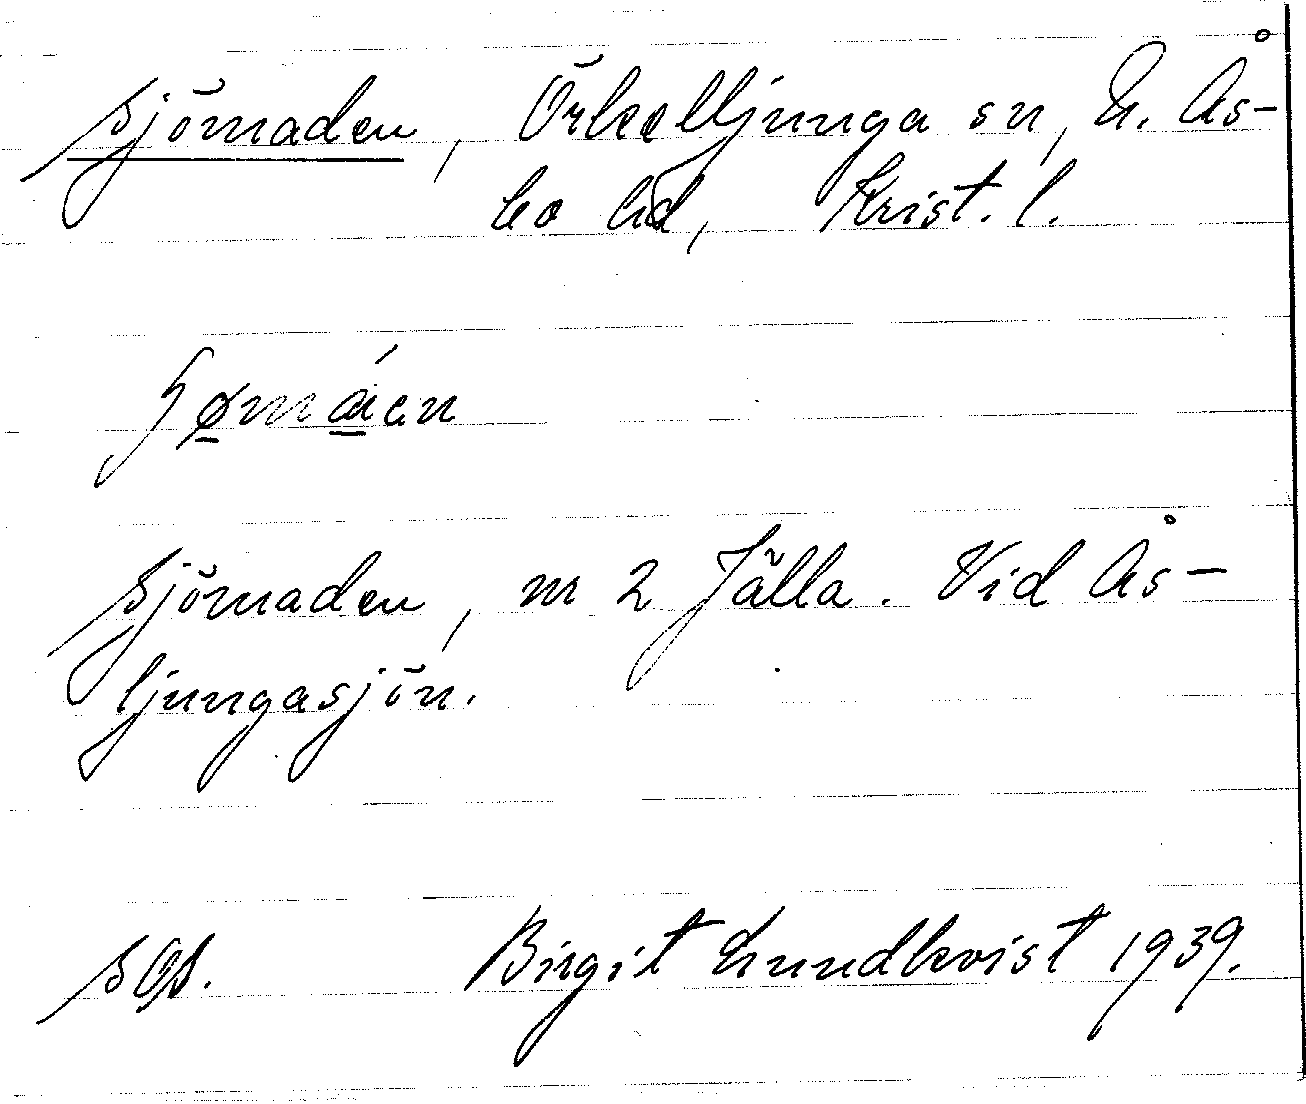 Sjömaden, Örkelljunga sn, N. Ås-
bo hd, Krist. l.
Sjömaden, nr 2 Jälla. Vid Ås-
ljungasjön.
sOs. Birgit Lundkvist 1939.